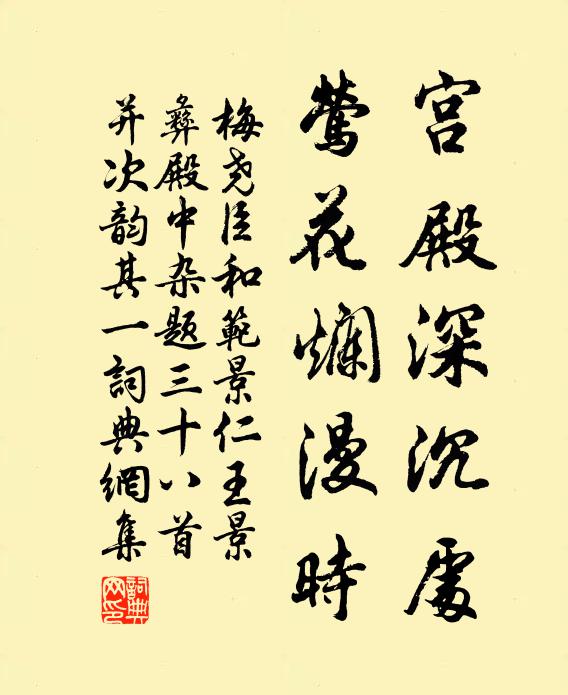 宫殿深沉處
鶯花爛漫時
梅堯臣和範景仁王景
彝殿中杂題三十八首
并次韵其一詞典網集
詞典网印